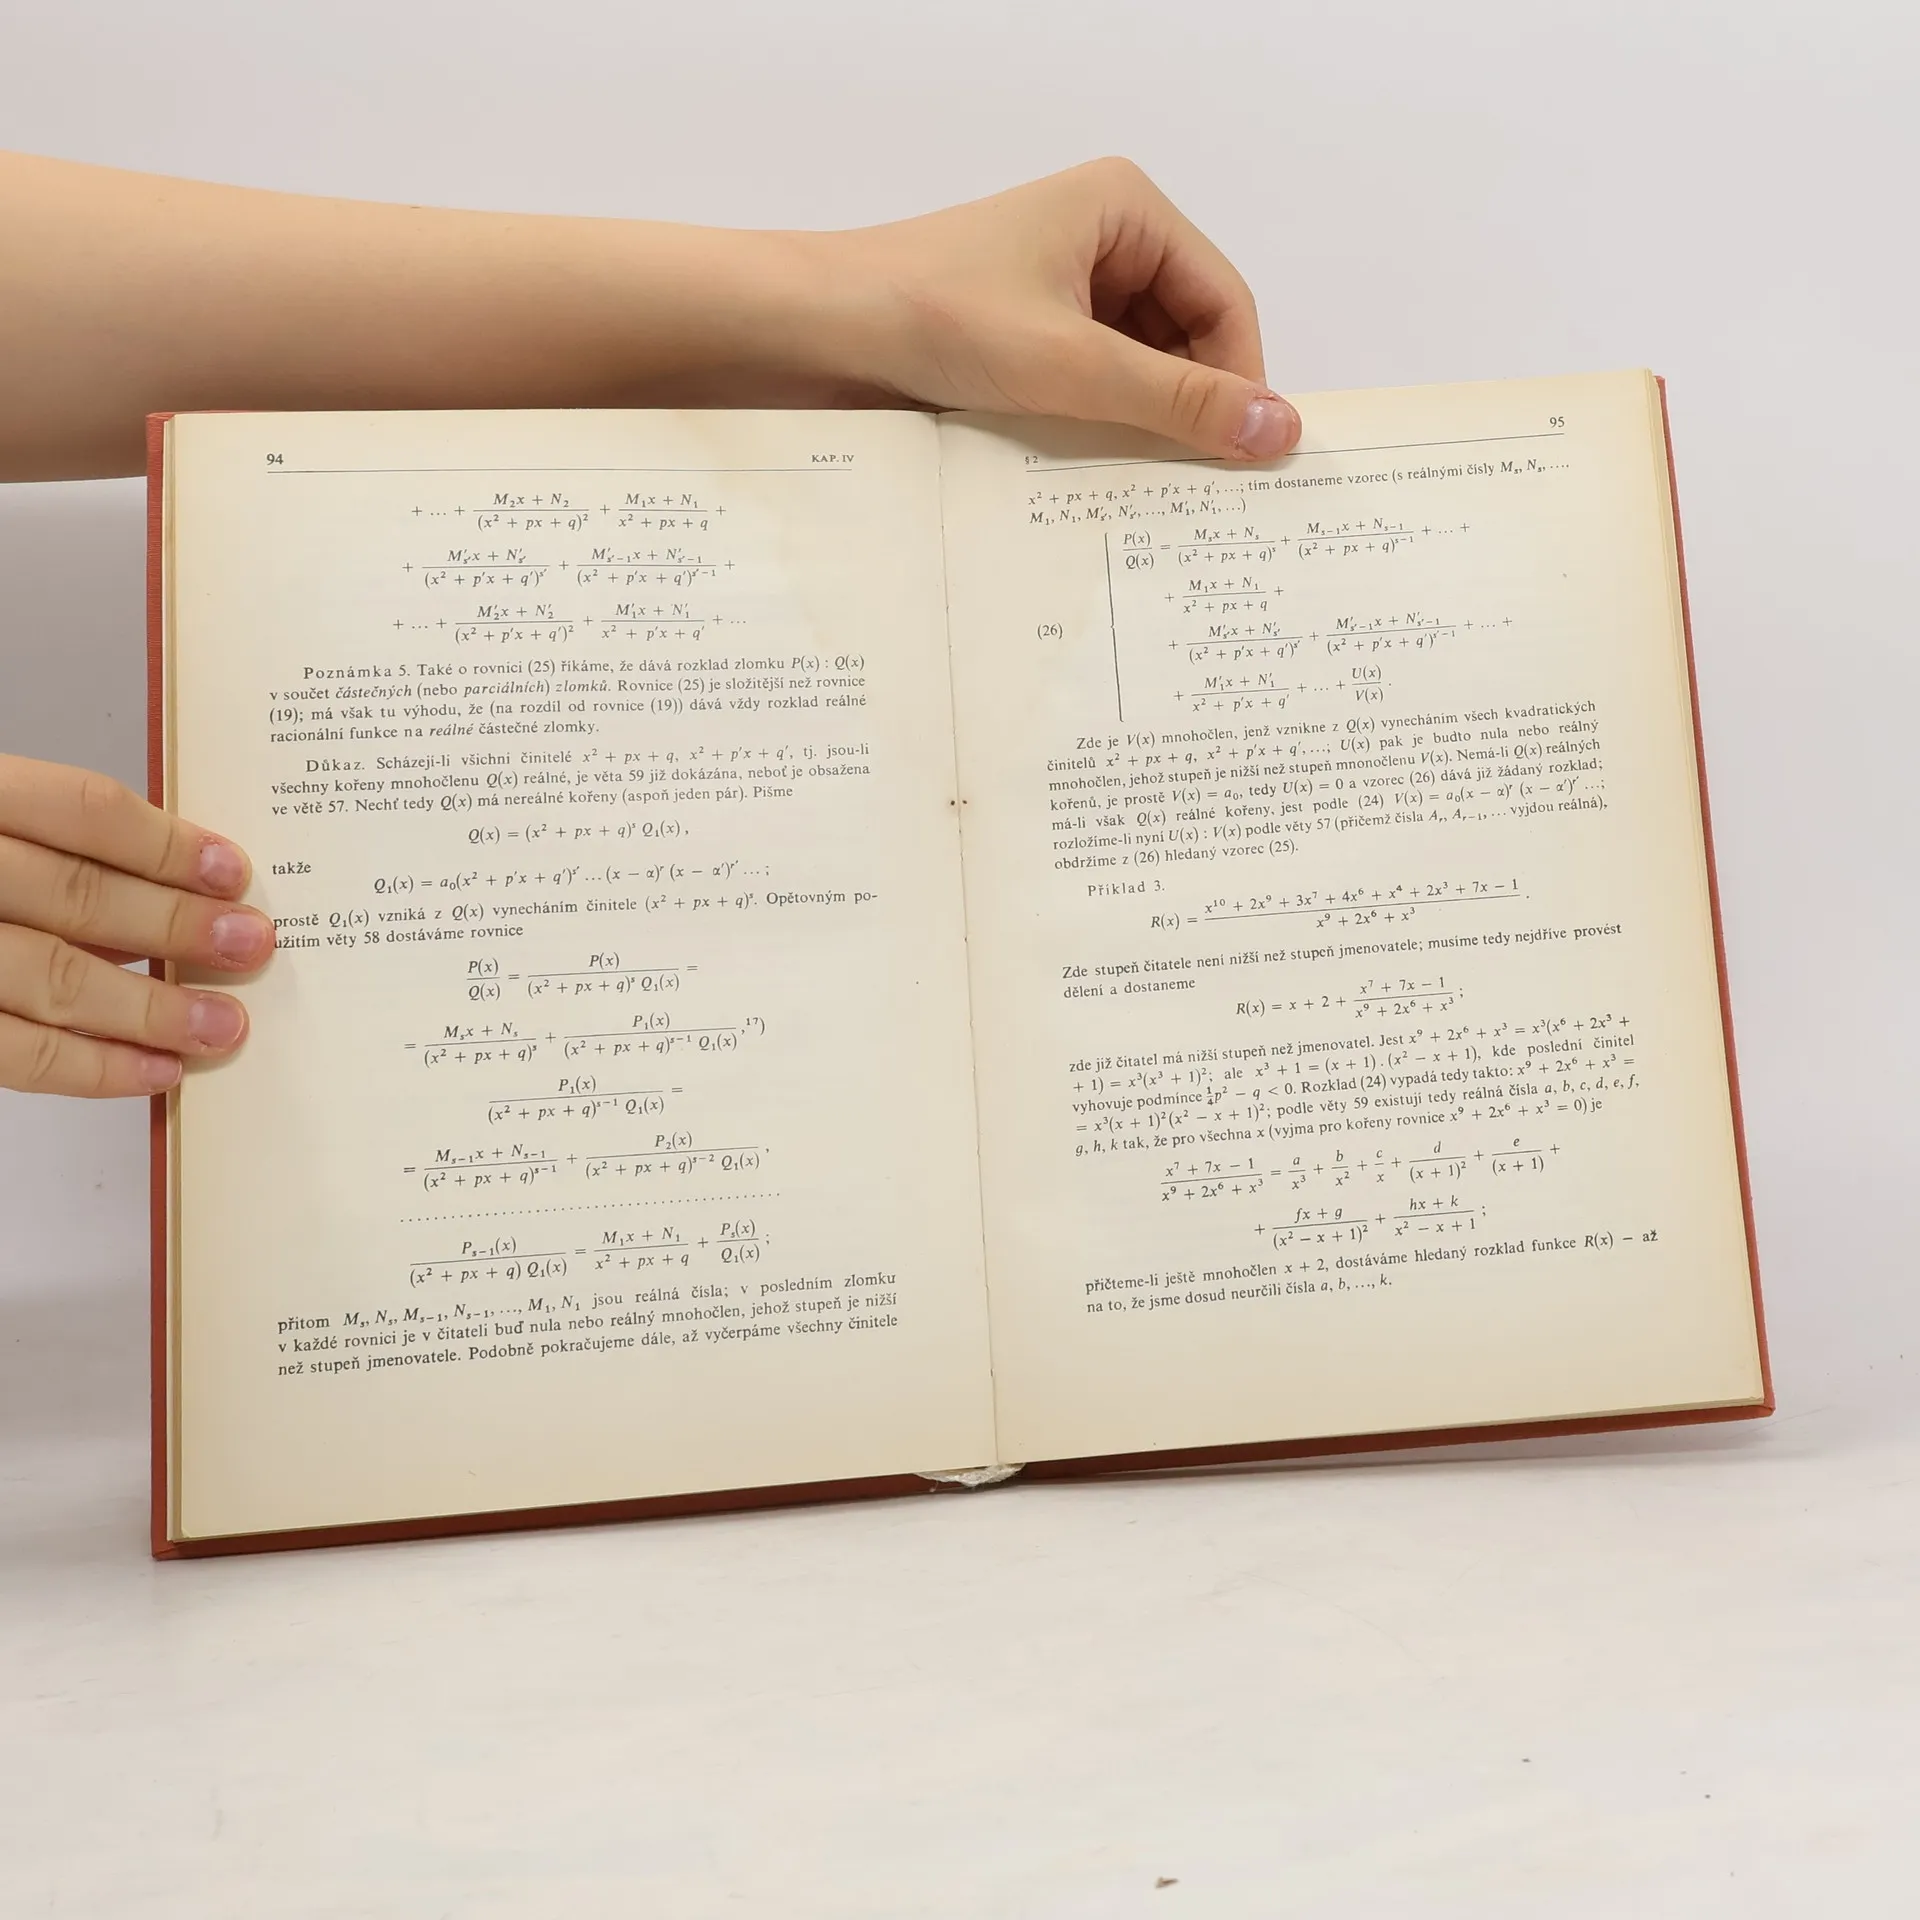 94 KAP. IV
+ ... + (M₂x + N₂)/(x² + px + q)² + (M₁x + N₁)/(x² + px + q) +
+ (M′ₛ′x + N′ₛ′)/(x² + p′x + q′)ˢ′ + (M′ₛ′₋₁x + N′ₛ′₋₁)/(x² + p′x + q′)ˢ′⁻¹ +
+ ... + (M′₂x + N′₂)/(x² + p′x + q′)² + (M′₁x + N′₁)/(x² + p′x + q′) + ...
Poznámka 5. Také o rovnici (25) říkáme, že dává rozklad zlomku P(x) : Q(x)
v součet částečných (nebo parciálních) zlomků. Rovnice (25) je složitější než rovnice
(19); má však tu výhodu, že (na rozdíl od rovnice (19)) dává vždy rozklad reálné
racionální funkce na reálné částečné zlomky.
Důkaz. Scházejí-li všichni činitelé x² + px + q, x² + p′x + q′, tj. jsou-li
všechny kořeny mnohočlenu Q(x) reálné, je věta 59 již dokázána, neboť je obsažena
ve větě 57. Nechť tedy Q(x) má nereálné kořeny (aspoň jeden pár). Pišme
Q(x) = (x² + px + q)ˢ Q₁(x),
takže
Q₁(x) = a₀(x² + p′x + q′)ˢ′ ... (x − α)ʳ (x − α′)ʳ′ ... ;
prostě Q₁(x) vzniká z Q(x) vynecháním činitele (x² + px + q)ˢ. Opětovným po-
užitím věty 58 dostáváme rovnice
P(x)/Q(x) = P(x)/((x² + px + q)ˢ Q₁(x)) =
= (Mₛx + Nₛ)/(x² + px + q)ˢ + P₁(x)/((x² + px + q)ˢ⁻¹ Q₁(x)),¹⁷)
P₁(x)/((x² + px + q)ˢ⁻¹ Q₁(x)) =
= (Mₛ₋₁x + Nₛ₋₁)/(x² + px + q)ˢ⁻¹ + P₂(x)/((x² + px + q)ˢ⁻² Q₁(x)),
........................................
Pₛ₋₁(x)/((x² + px + q) Q₁(x)) = (M₁x + N₁)/(x² + px + q) + Pₛ(x)/Q₁(x);
přitom Mₛ, Nₛ, Mₛ₋₁, Nₛ₋₁, ..., M₁, N₁ jsou reálná čísla; v posledním zlomku
v každé rovnici je v čitateli buď nula nebo reálný mnohočlen, jehož stupeň je nižší
než stupeň jmenovatele. Podobně pokračujeme dále, až vyčerpáme všechny činitele
§ 2 95
x² + px + q, x² + p′x + q′, ...; tím dostaneme vzorec (s reálnými čísly Mₛ, Nₛ, ...,
M₁, N₁, M′ₛ′, N′ₛ′, ..., M′₁, N′₁, ...)
P(x)/Q(x) = (Mₛx + Nₛ)/(x² + px + q)ˢ + (Mₛ₋₁x + Nₛ₋₁)/(x² + px + q)ˢ⁻¹ + ... +
+ (M₁x + N₁)/(x² + px + q) +
(26) + (M′ₛ′x + N′ₛ′)/(x² + p′x + q′)ˢ′ + (M′ₛ′₋₁x + N′ₛ′₋₁)/(x² + p′x + q′)ˢ′⁻¹ + ... +
+ (M′₁x + N′₁)/(x² + p′x + q′) + ... + U(x)/V(x).
Zde je V(x) mnohočlen, jenž vznikne z Q(x) vynecháním všech kvadratických
činitelů x² + px + q, x² + p′x + q′, ...; U(x) pak je budto nula nebo reálný
mnohočlen, jehož stupeň je nižší než stupeň mnonočlenu V(x). Nemá-li Q(x) reálných
kořenů, je prostě V(x) = a₀, tedy U(x) = 0 a vzorec (26) dává již žádaný rozklad;
má-li však Q(x) reálné kořeny, jest podle (24) V(x) = a₀(x − α)ʳ (x − α′)ʳ′ ...;
rozložíme-li nyní U(x) : V(x) podle věty 57 (přičemž čísla Aᵣ, Aᵣ₋₁, ... vyjdou reálná),
obdržíme z (26) hledaný vzorec (25).
Příklad 3.
R(x) = (x¹⁰ + 2x⁹ + 3x⁷ + 4x⁶ + x⁴ + 2x³ + 7x − 1)/(x⁹ + 2x⁶ + x³).
Zde stupeň čitatele není nižší než stupeň jmenovatele; musíme tedy nejdříve provést
dělení a dostaneme
R(x) = x + 2 + (x⁷ + 7x − 1)/(x⁹ + 2x⁶ + x³);
zde již čitatel má nižší stupeň než jmenovatel. Jest x⁹ + 2x⁶ + x³ = x³(x⁶ + 2x³ +
+ 1) = x³(x³ + 1)²; ale x³ + 1 = (x + 1) . (x² − x + 1), kde poslední činitel
vyhovuje podmínce ¼p² − q < 0. Rozklad (24) vypadá tedy takto: x⁹ + 2x⁶ + x³ =
= x³(x + 1)²(x² − x + 1)²; podle věty 59 existují tedy reálná čísla a, b, c, d, e, f,
g, h, k tak, že pro všechna x (vyjma pro kořeny rovnice x⁹ + 2x⁶ + x³ = 0) je
(x⁷ + 7x − 1)/(x⁹ + 2x⁶ + x³) = a/x³ + b/x² + c/x + d/(x + 1)² + e/(x + 1) +
+ (fx + g)/(x² − x + 1)² + (hx + k)/(x² − x + 1);
přičteme-li ještě mnohočlen x + 2, dostáváme hledaný rozklad funkce R(x) − až
na to, že jsme dosud neurčili čísla a, b, ..., k.